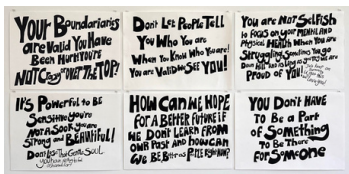 YOUR BOUNDARIES
are VALID YOU HAVE
BEEN HURT YOU'RE
NOT CRAZY OR OVER THE TOP!
DON'T LET PEOPLE TELL
YOU WHO YOU ARE
WHEN YOU KNOW WHO YOU are!
YOU are VALID WE SEE YOU!
YOU are NOT SELFISH
TO FOCUS ON YOUR MENTAL AND
PHYSICAL HEALTH WHEN YOU ARE
STRUGGLING
PROUD OF YOU
IT'S POWERFUL TO BE
SENSITIVE YOU'RE
NOT A SOOK YOU are
STRONG AND BEAUTIFUL!
GENTLE SOUL
HOW CAN WE HOPE
FOR A BETTER FUTURE IF
WE DON'T LEARN FROM
OUR PAST AND HOW CAN
WE BE BETTER AS PEOPLE RIGHT NOW?
YOU DON'T HAVE
TO BE a PART
OF SOMETHING
TO BE THERE
FOR SOMEONE